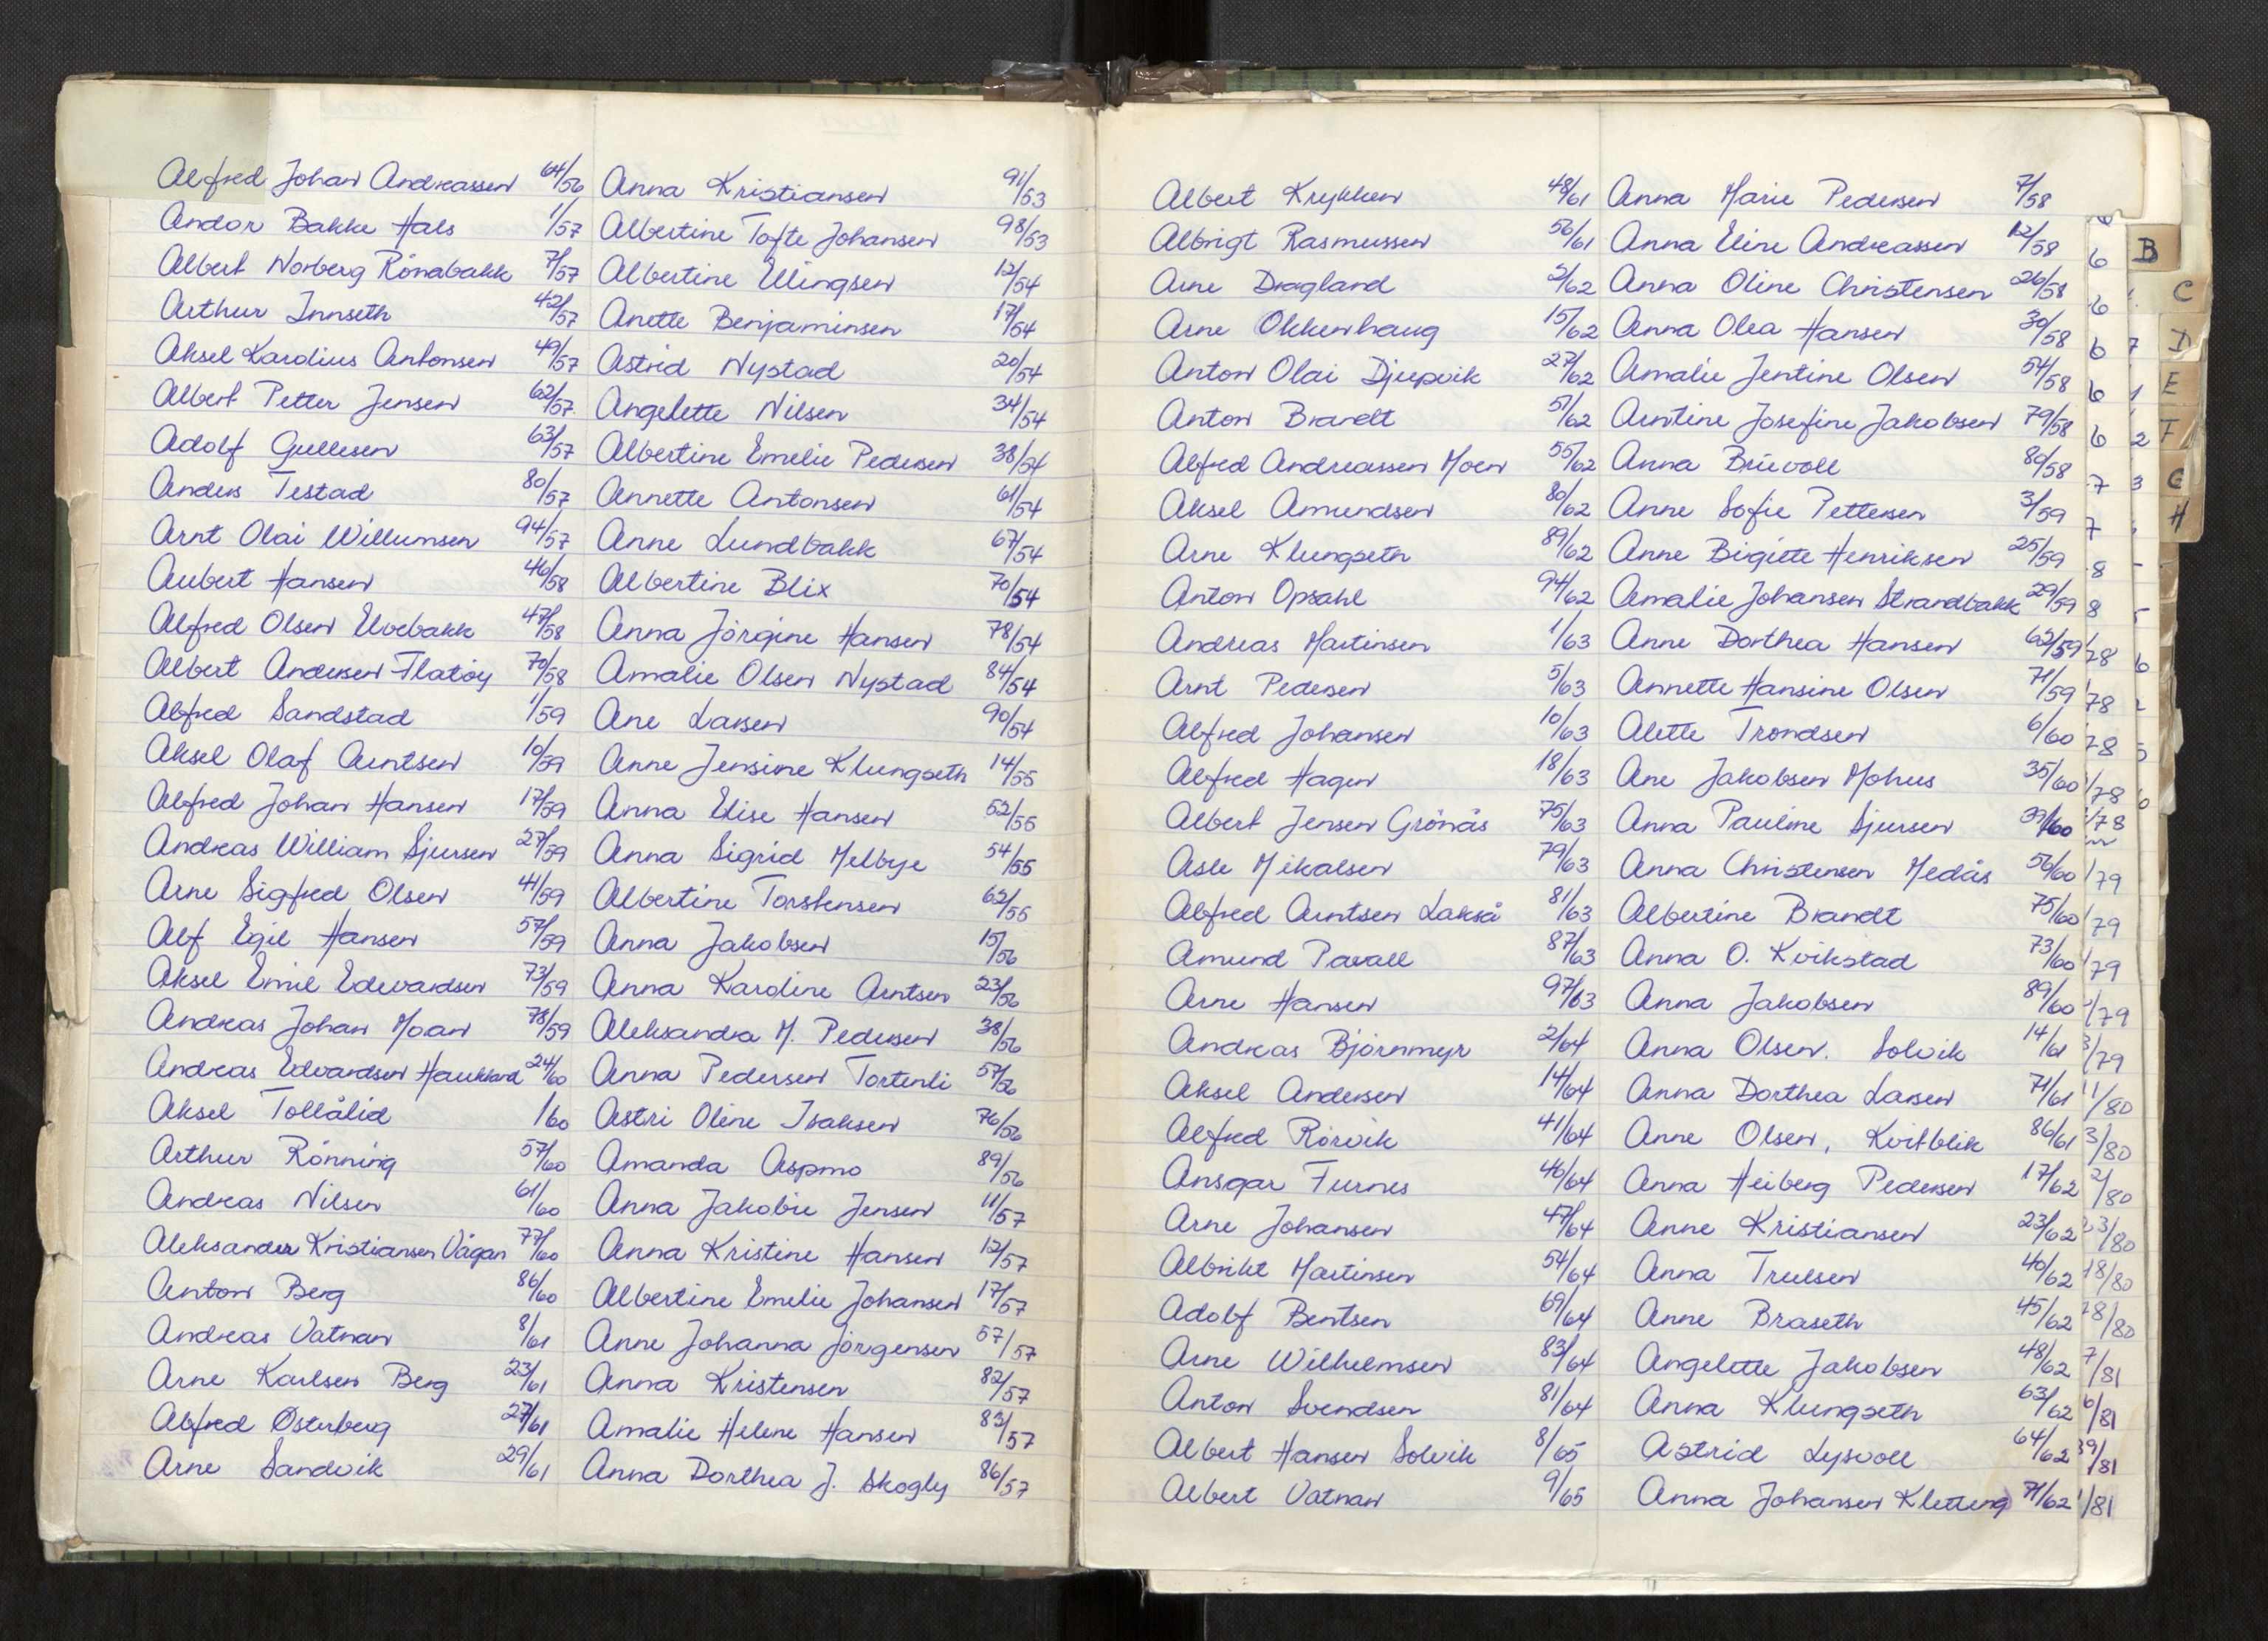 Alfred Johan Andreassen 64/56
Andor Bakke Hals 1/57
Albert Norberg Rönabakk 7/57
Arthur Innseth 42/57
Aksel Karolius Antonsen 49/57
Albert Petter Jensen 62/57
Adolf Gullesen 63/57
Anders Testad 80/57
Arnt Olai Willumsen 94/57
Aubert Hansen 46/58
Alfred Olsen Elvebakk 47/58
Albert Andersen Flatöy 70/58
Alfred Sandstad 1/59
Aksel Olaf Arntsen 10/59
Alfred Johan Hansen 17/59
Andreas William Sjursen 27/59
Arne Sigfred Olsen 41/59
Alf Egil Hansen 57/59
Aksel Emil Edvardsen 73/59
Andreas Johan Moan 78/59
Andreas Edvardsen Haukland 24/60
Aksel Tollålid 1/60
Arthur Rönning 57/60
Andreas Nilsen 61/60
Aleksander Kristiansen Vågan 77/60
Anton Berg 86/60
Andreas Vatnan 8/61
Arne Karlsen Berg 23/61
Alfred Østerberg 27/61
Arne Sandvik 29/61
Anna Kristiansen 91/53
Albertine Tofte Johansen 98/53
Albertine Ellingsen 12/54
Anette Benjaminsen 17/54
Astrid Nystad 20/54
Angelette Nilsen 34/54
Albertine Emelie Pedersen 38/54
Annette Antonsen 61/54
Anne Lundbakk 67/54
Albertine Blix 70/54
Anna Jörgine Hansen 78/54
Amalie Olsen Nystad 84/54
Ane Larsen 90/54
Anne Jensine Klungseth 14/55
Anna Elise Hansen 52/55
Anna Sigrid Melbye 54/55
Albertine Torstensen 62/55
Anna Jakobsen 15/56
Anna Karoline Arntsen 23/56
Aleksandra M. Pedersen 38/56
Anna Pedersen Tortenli 57/56
Astri Oline Isaksen 76/56
Amanda Aspmo 89/56
Anna Jakobie Jensen 11/57
Anna Kristine Hansen 12/57
Albertine Emelie Johansen 17/57
Anne Johanna Jörgensen 57/57
Anna Kristensen 82/57
Amalie Helene Hansen 83/57
Anna Dorthea J. Skogly 86/57
Albert Krykken 48/61
Albrigt Rasmussen 56/61
Arne Dragland 2/62
Arne Okkenhaug 15/62
Anton Olai Djupvik 27/62
Anton Brandt 51/62
Alfred Andreassen Moen 55/62
Aksel Amundsen 80/62
Arne Klungseth 89/62
Anton Opsahl 94/62
Andreas Martinsen 1/63
Arnt Pedersen 5/63
Alfred Johansen 10/63
Alfred Hagen 18/63
Albert Jensen Grönås 75/63
Asle Mikalsen 79/63
Alfred Arntsen Lakså 81/63
Amund Pavall 87/63
Arne Hansen 97/63
Andreas Björnmyr 2/64
Aksel Andersen 14/64
Alfred Rörvik 41/64
Ansgar Furnes 46/64
Arne Johansen 47/64
Albrikt Martinsen 54/64
Adolf Bentsen 69/64
Arne Wilhelmsen 83/64
Anton Svendsen 81/64
Albert Hansen Solvik 8/65
Albert Vatnan 9/65
Anna Marie Pedersen 7/58
Anna Eline Andreassen 12/58
Anna Oline Christensen 26/58
Anna Olea Hansen 30/58
Amalie Jentine Olsen 54/58
Arntine Josefine Jakobsen 79/58
Anna Brüvoll 80/58
Anne Sofie Pettersen 3/59
Anne Birgitte Henriksen 25/59
Amalie Johansen Strandbakk 29/59
Anne Dorthea Hansen 62/59
Annette Hansine Olsen 71/59
Alette Trondsen 6/60
Ane Jakobsen Mohus 35/60
Anna Pauline Sjursen 39/60
Anna Christensen Medås 56/60
Albertine Brandt 75/60
Anna O. Kvikstad 73/60
Anna Jakobsen 89/60
Anna Olsen. Solvik 14/61
Anna Dorthea Larsen 71/61
Anne Olsen, Kvitblik 86/61
Anna Heiberg Pedersen 17/62
Anne Kristiansen 23/62
Anna Trulsen 40/62
Anne Braseth 45/62
Angelette Jakobsen 48/62
Anna Klungseth 63/62
Astrid Lysvoll 64/62
Anna Johansen Kletteng 71/62
B
C
D
E
F
G
H